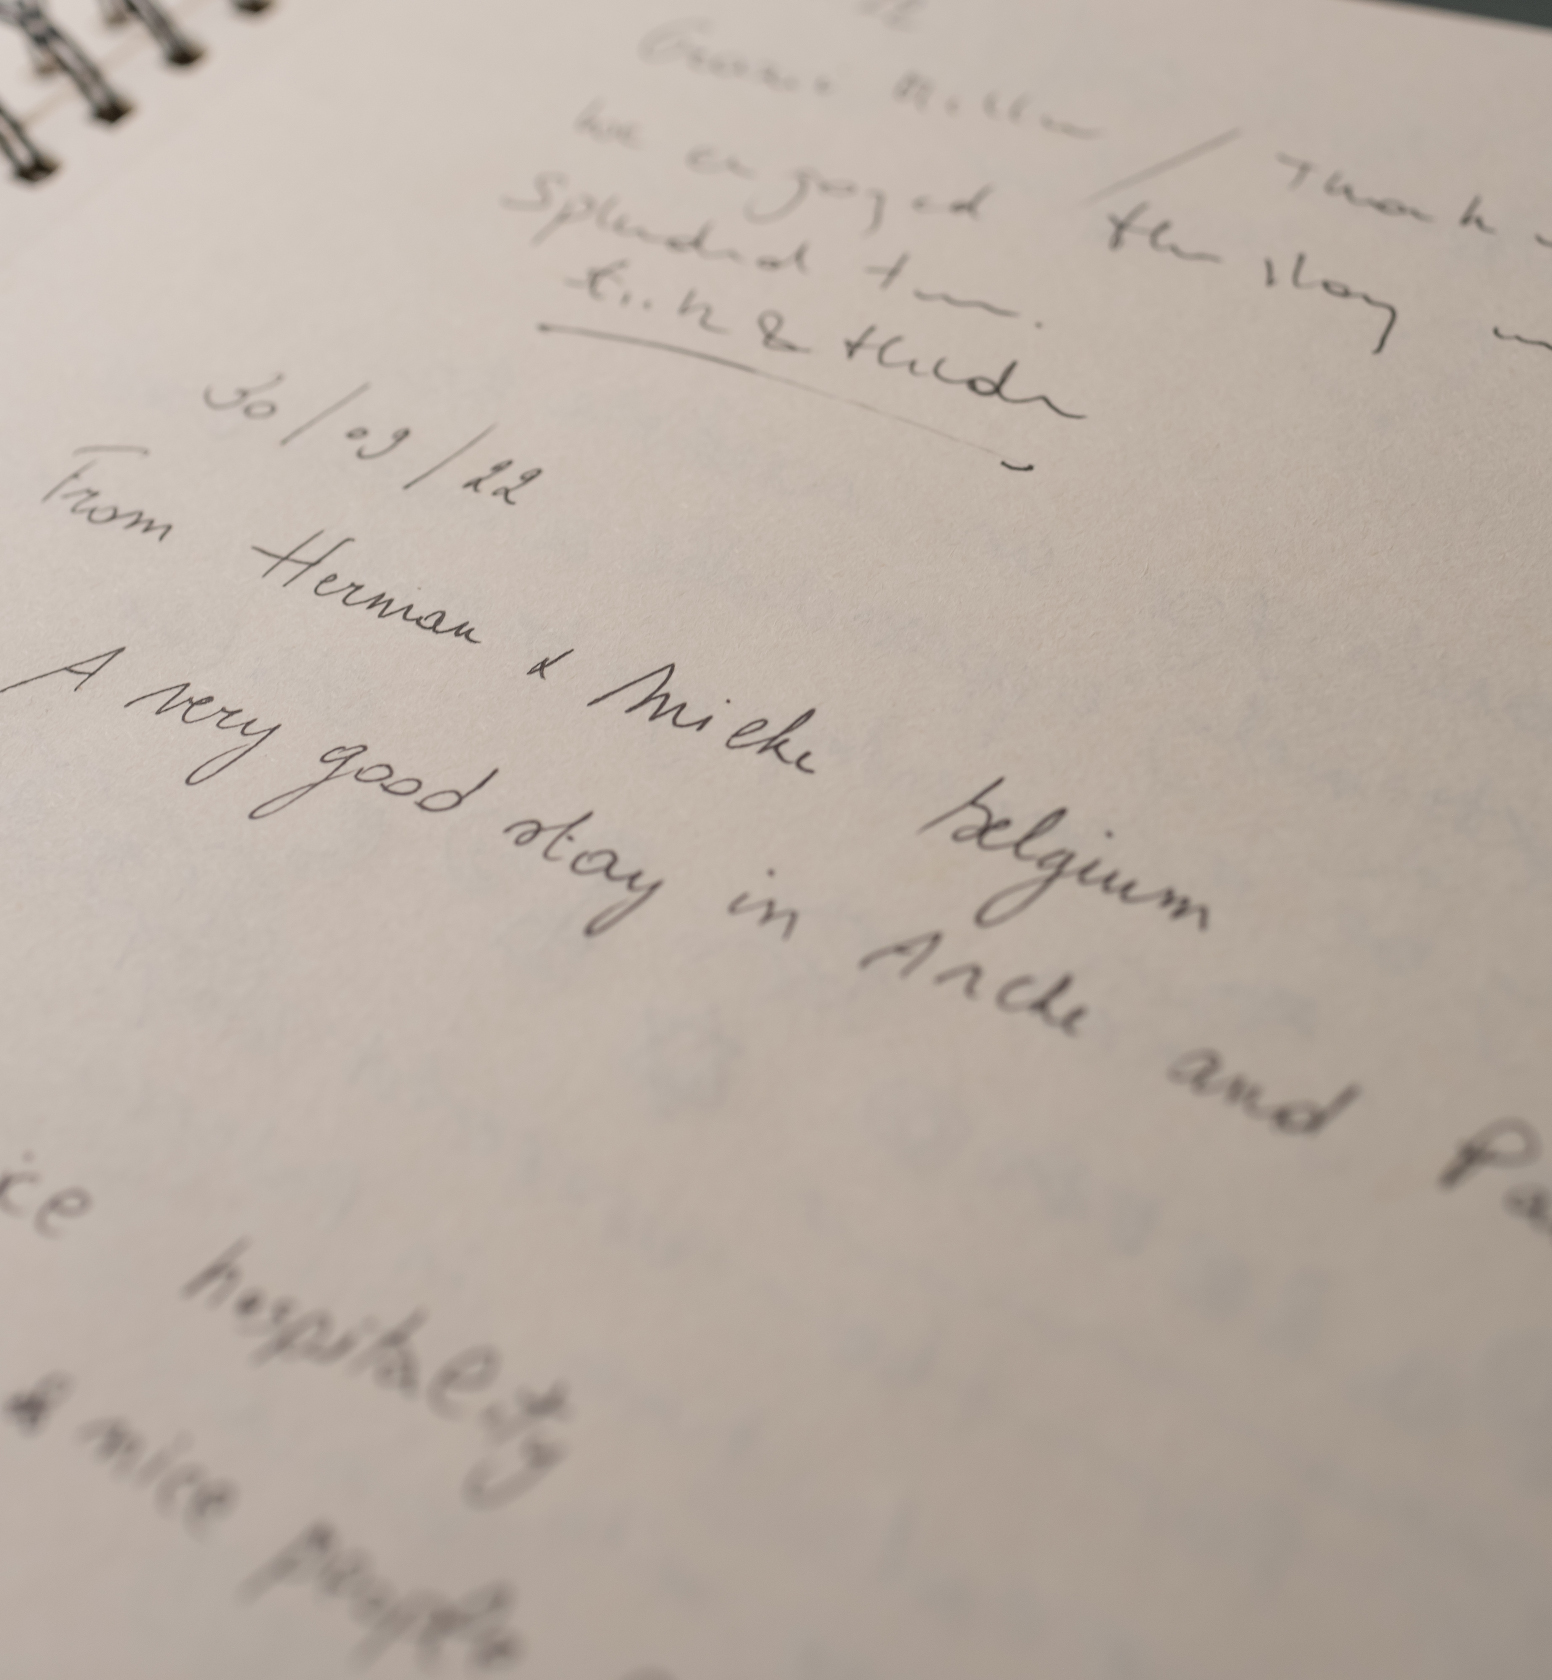 Thank
we engoyed the stay
Splendid
&
30/09/22
From Herman & Mieke Belgium
A very good stay in Arche and
hospitality
& nice people